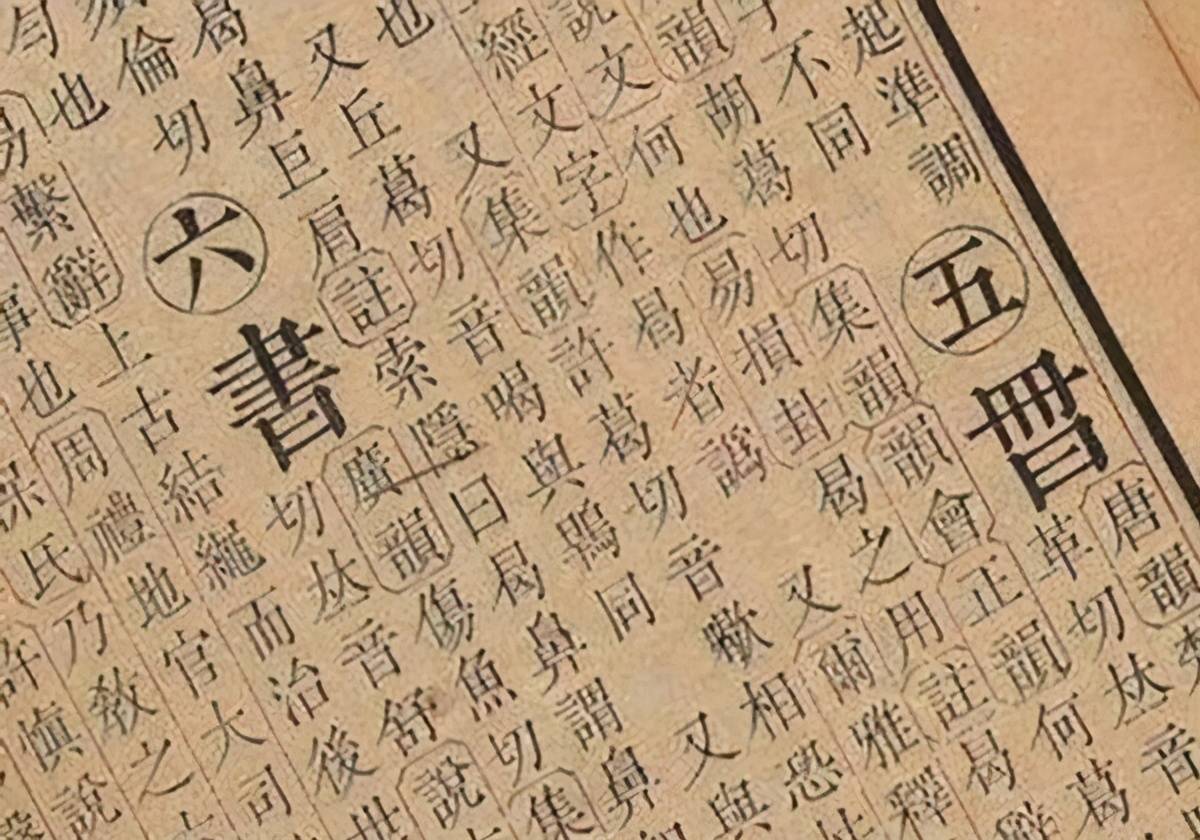 起準調五
唐韻
革切𠀤音
不同
韻胡葛切集韻韻會正韻何葛
說文何也易損卦曷之用註曷
經文字作曷者譌 又爾雅釋
又集韻許葛切音歇相恐
也
又丘葛切音喝與鶡同 又與
曷鼻巨肩註索隱曰曷鼻謂鼻
倫切六書
廣韻傷魚切集
切𠀤音舒說
勻也
易繫辭上古結繩而治後世
事也周禮地官大司
保氏乃教之
許慎說